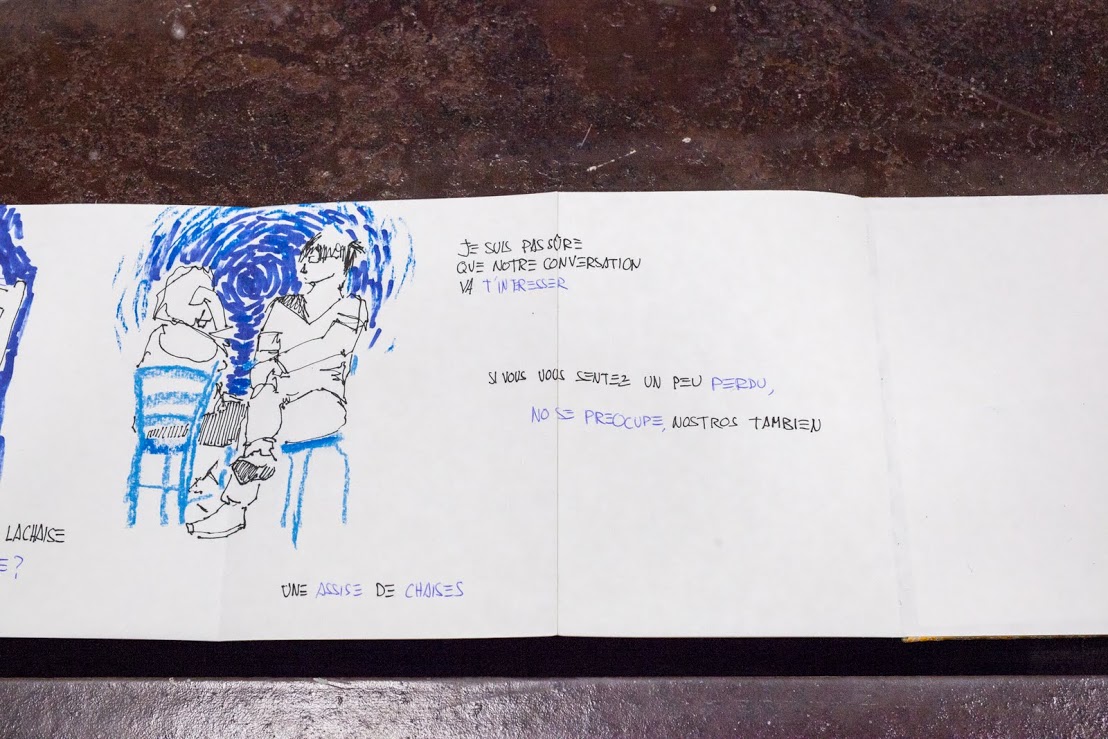 LACHAISE
E?
UNE ASSISE DE CHAISES
JE SUIS PAS SÛRE
QUE NOTRE CONVERSATION
VA T'INTERESSER
SI VOUS VOUS SENTEZ UN PEU PERDU,
NO SE PREOCUPE, NOSTROS TAMBIEN